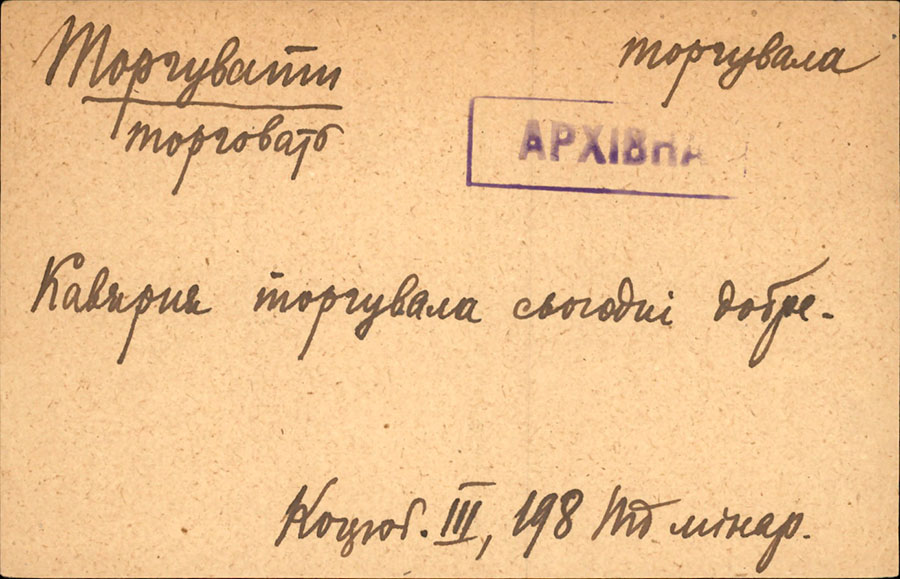 Торгувати торгувала
торговать
АРХІВНА
Кавярня торгувала сьогодні добре.
Коцюб. III, 198 Під мінар.